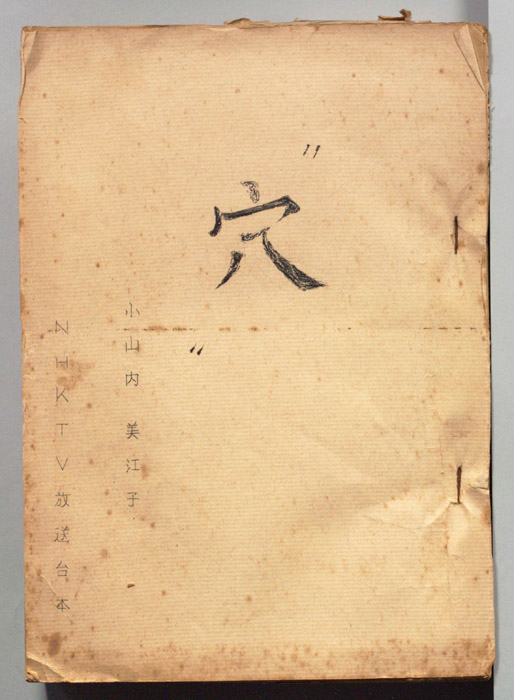 〃穴〃
小山内 美江子
NHKTV放送台本